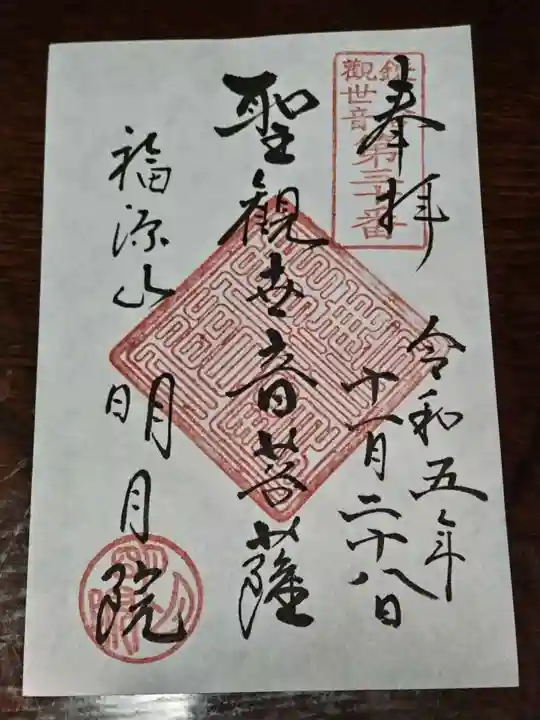 奉拝
令和五年
十一月二十八日
聖観世音菩薩
福源山
明月院
観世音
第三十番